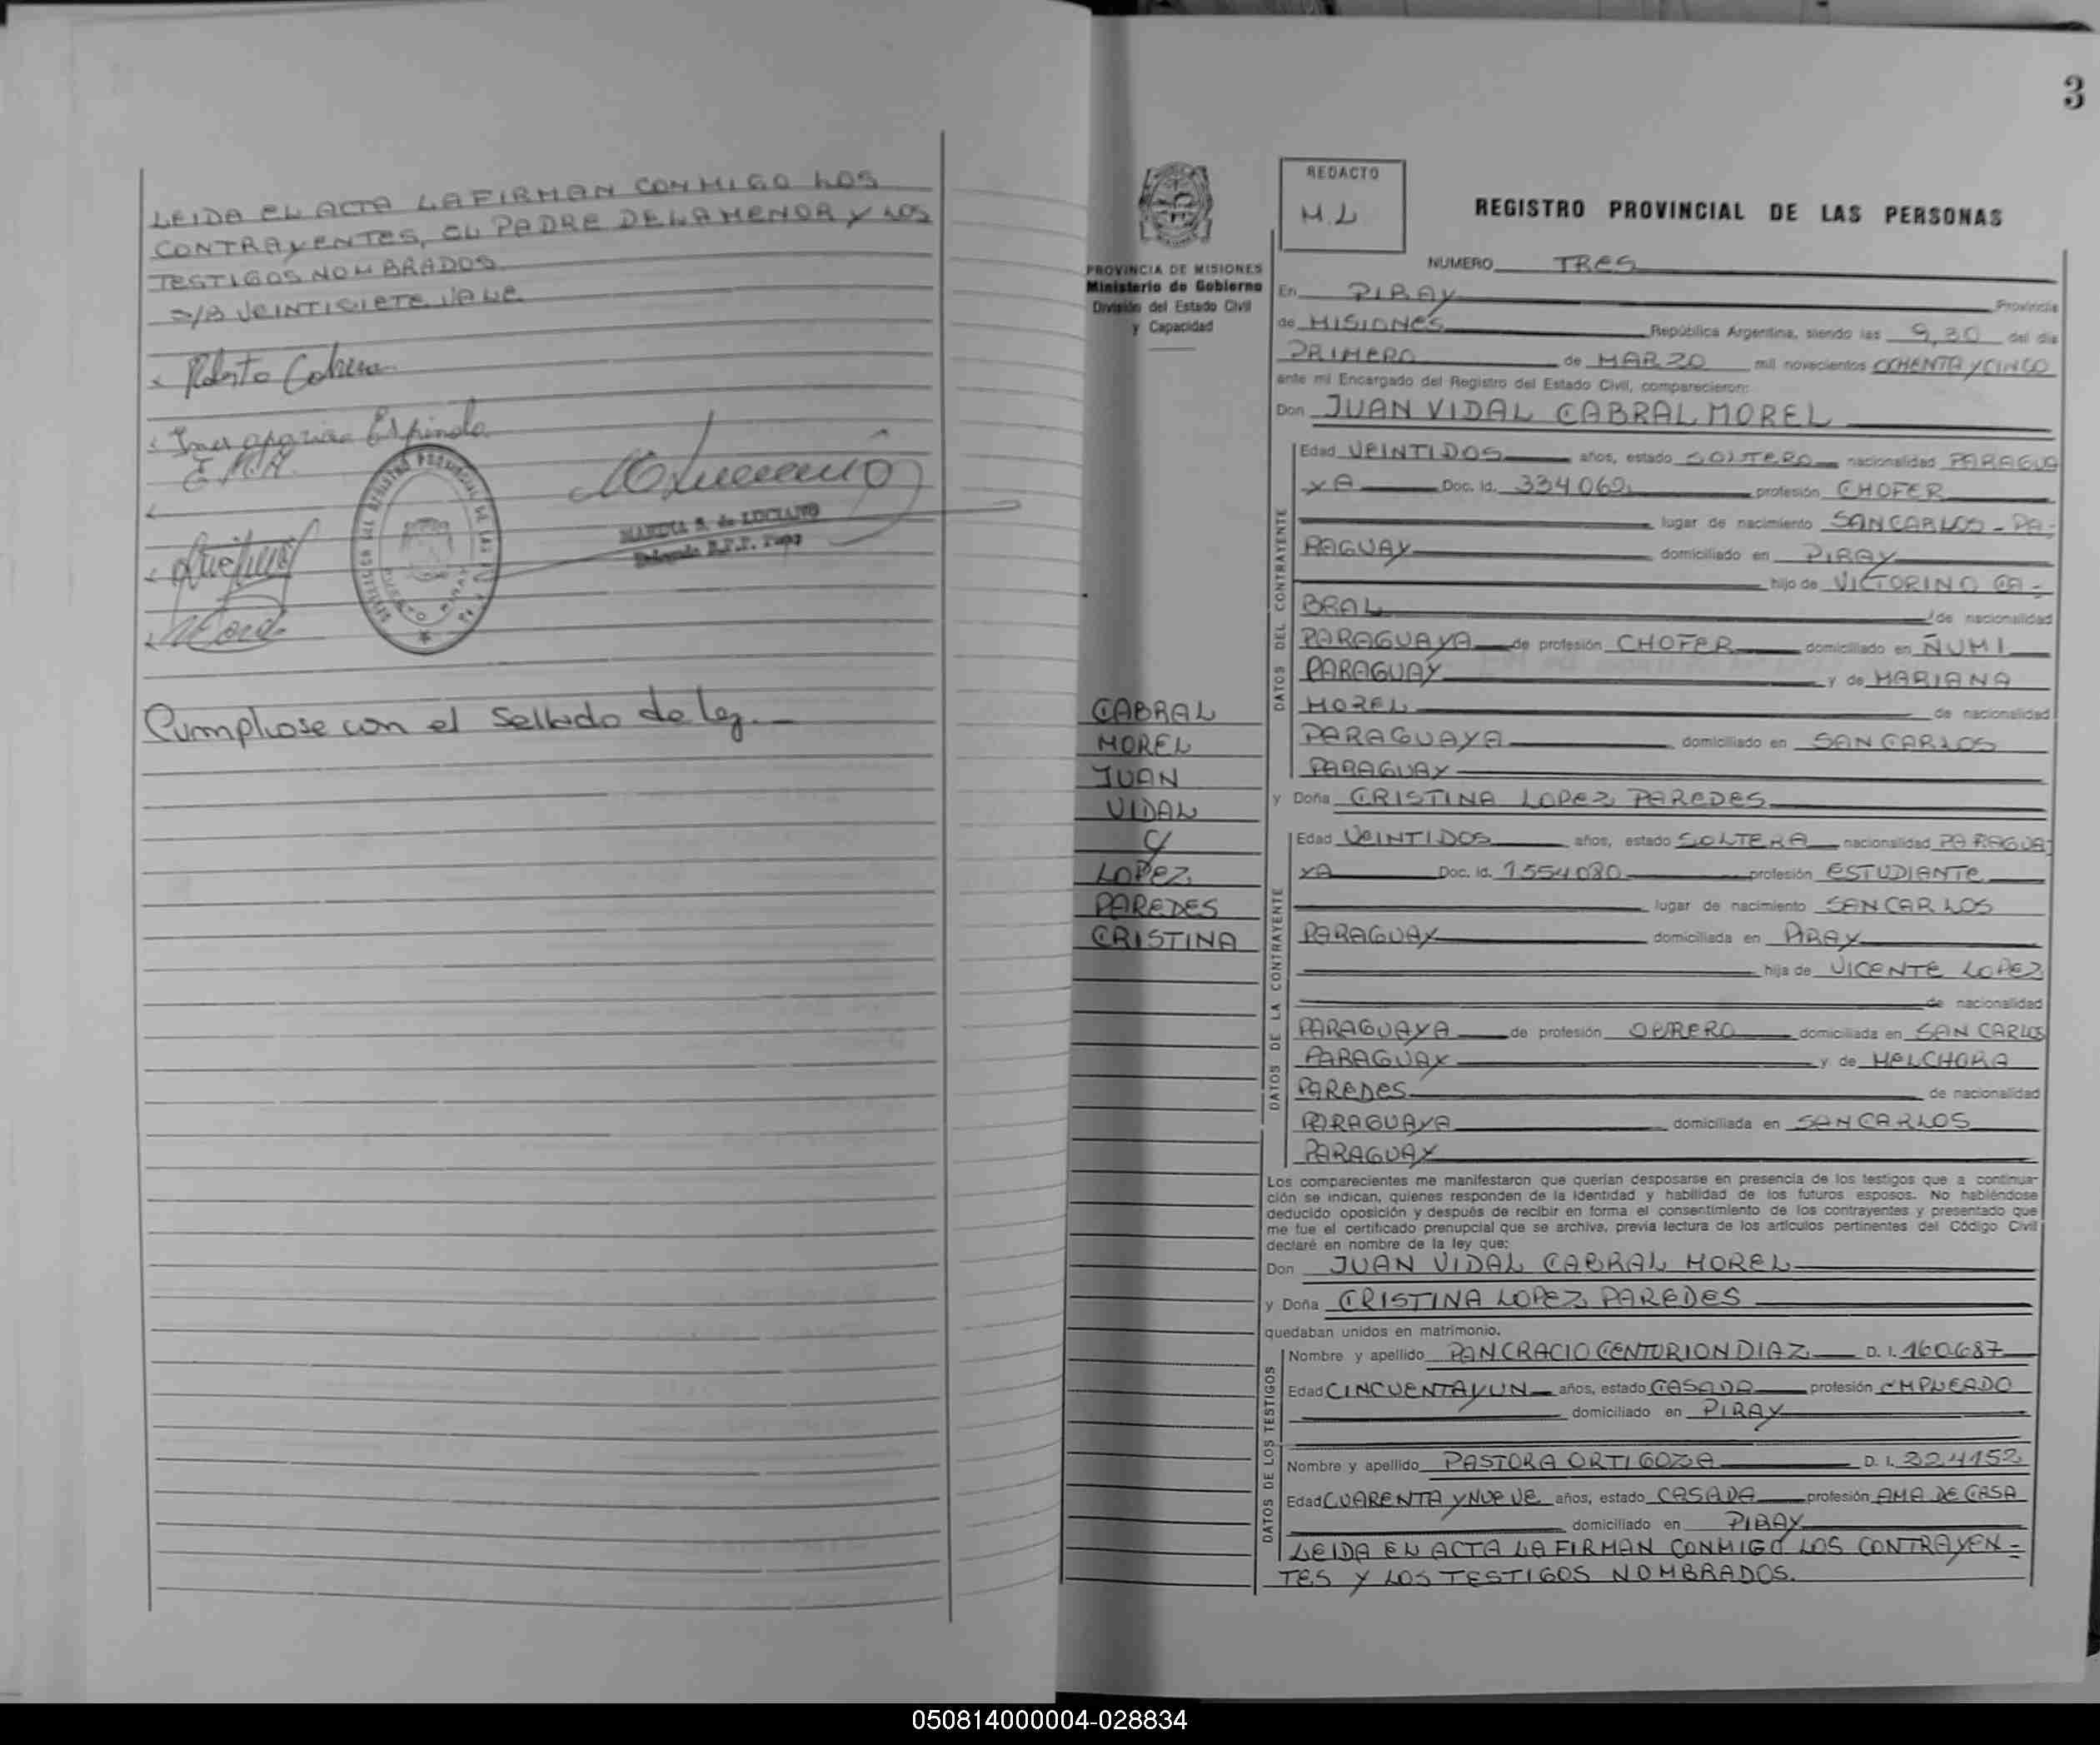 LEIDA EL ACTA LA FIRMAN CONMIGO LOS
CONTRAYENTES, EL PADRE DE LA MENOR Y LOS
TESTIGOS NOMBRADOS
S/B VEINTISIETE VALE
Roberto Cabrera
Espindola
REGISTRO PROVINCIAL DE LAS
MARTHA S. de LUCIANO
Cumpliose con el Sellado de ley.
3
PROVINCIA DE MISIONES
Ministerio de Gobierno
División del Estado Civil
y Capacidad
CABRAL
MOREL
JUAN
VIDAL
C/
LOPEZ
PAREDES
CRISTINA
REDACTO
M.L
REGISTRO PROVINCIAL DE LAS PERSONAS
NUMERO TRES
En PIRAY Provincia
de MISIONES República Argentina, siendo las 9,30 del día
PRIMERO de MARZO mil novecientos OCHENTA Y CINCO
ante mi Encargado del Registro del Estado Civil, comparecieron:
Don JUAN VIDAL CABRAL MOREL
DATOS DEL CONTRAYENTE
Edad VEINTIDOS años, estado SOLTERO nacionalidad PARAGUA
YA Doc. Id. 334062 profesión CHOFER
lugar de nacimiento SAN CARLOS - PA-
RAGUAY domiciliado en PIRAY
hijo de VICTORINO CA-
BRAL de nacionalidad
PARAGUAYA de profesión CHOFER domiciliado en ÑUMI
PARAGUAY y de MARIANA
MOREL de nacionalidad
PARAGUAYA domiciliado en SAN CARLOS
PARAGUAY
y Doña CRISTINA LOPEZ PAREDES
DATOS DE LA CONTRAYENTE
Edad VEINTIDOS años, estado SOLTERA nacionalidad PARAGUA-
YA Doc. Id. 1554080 profesión ESTUDIANTE
lugar de nacimiento SAN CARLOS
PARAGUAY domiciliada en PIRAY
hija de VICENTE LOPEZ
de nacionalidad
PARAGUAYA de profesión OBRERO domiciliada en SAN CARLOS
PARAGUAY y de MELCHORA
PAREDES de nacionalidad
PARAGUAYA domiciliada en SAN CARLOS
PARAGUAY
Los comparecientes me manifestaron que querían desposarse en presencia de los testigos que a continua-
ción se indican, quienes responden de la identidad y habilidad de los futuros esposos. No habiéndose
deducido oposición y después de recibir en forma el consentimiento de los contrayentes y presentado que
me fue el certificado prenupcial que se archiva, previa lectura de los artículos pertinentes del Código Civil
declaré en nombre de la ley que:
Don JUAN VIDAL CABRAL MOREL
y Doña CRISTINA LOPEZ PAREDES
quedaban unidos en matrimonio.
DATOS DE LOS TESTIGOS
Nombre y apellido PANCRACIO CENTURION DIAZ D. I. 160687
Edad CINCUENTA Y UN años, estado CASADO profesión EMPLEADO
domiciliado en PIRAY
Nombre y apellido PASTORA ORTIGOZA D. I. 224152
Edad CUARENTA Y NUEVE años, estado CASADA profesión AMA DE CASA
domiciliado en PIRAY
LEIDA EN ACTA LA FIRMAN CONMIGO LOS CONTRAYEN-
TES Y LOS TESTIGOS NOMBRADOS.
050814000004-028834